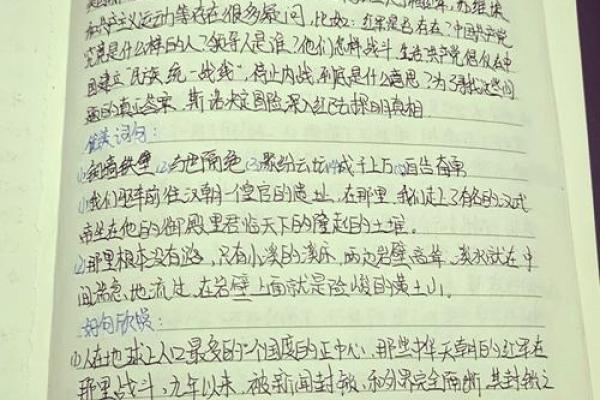 和共产主义运动等存在很多疑问，比如：红军是否存在？中国共产党
究竟是什么样的人？领导人是谁？他们怎样战斗、生活 共产党倡仪在中
国建立"民族统一战线"，停止内战，到底是什么意思？为了寻找这些问
题的真正答案，斯诺决定冒险深入红区去探明真相
优美词句：
(1)铜墙铁壁 (2)与世隔绝 (3)众说纷纭 (4)成千上万 (5)百告奋勇
(1)我们驱车前往汉朝一个皇宫的遗址，在那里，我们走上了有名的汉武
帝坐在他的御殿里君临天下的隆起的土堆。
(2)那里根本没有路，只有小溪的溪床，两边岩壁高耸，溪水就在中
间湍急地流过，在岩壁上面就是险峻的黄土山。
好句欣赏：
(1)人在地球上人口最多的一个国度的正中心，那些中华天朝的红军在
那里战斗，九年以来，被新闻封锁，和外界完全隔断 其封锁之